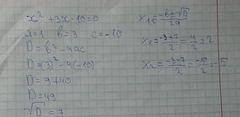 x² + 3x - 10 = 0
a = 1 b = 3 c = -10
D = b² - 4ac
D = (3)² - 4(-10)
D = 9 + 40
D = 49
√D = 7
x₁ = (-b ± √D) / 2a
x₁ = (-3 + 7) / 2 = 4 / 2 = 2
x₂ = (-3 - 7) / 2 = -10 / 2 = -5